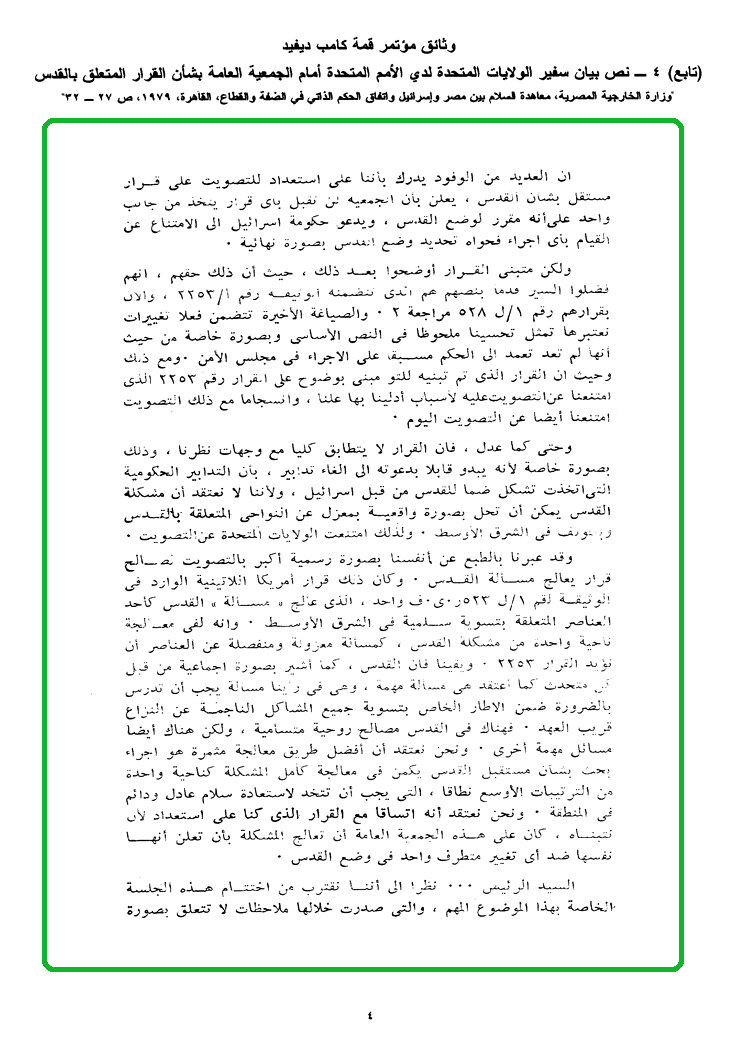 وثائق مؤتمر قمة كامب ديفيد
(تابع) ٤ ــ نص بيان سفير الولايات المتحدة لدي الأمم المتحدة أمام الجمعية العامة بشأن القرار المتعلق بالقدس
"وزارة الخارجية المصرية، معاهدة السلام بين مصر وإسرائيل واتفاق الحكم الذاتي في الضفة والقطاع، القاهرة، ١٩٧٩، ص ٢٧ ــ ٣٢"
ان العديد من الوفود يدرك بأننا على استعداد للتصويت على قـرار
مستقل بشأن القدس ، يعلن بأن الجمعيه لن تقبل بأى قرار يتخذ من جانب
واحد على أنه مقرر لوضع القدس ، ويدعو حكومة اسرائيل الى الامتناع عن
القيام بأى اجراء فحواه تحديد وضع القدس بصورة نهائية ٠
ولكن متبنى القـرار أوضحوا بعـد ذلك ، حيث أن ذلك حقهم ، انهم
فضلوا السير قدما بنصهم هم الذى تتضمنه الوثيقـه رقم أ/٢٢٥٣ ، والآن
بقرارهم رقم ١/ل ٥٢٨ مراجعة ٢ ٠ والصياغة الأخيرة تتضمن فعلا تغييرات
نعتبرها تمثل تحسينا ملحوظا فى النص الأساسى وبصورة خاصة من حيث
أنها لم تعد تعمد الى الحكم مسـبقا على الاجراء فى مجلس الأمن ٠ومع ذلك
وحيث ان القرار الذى تم تبنيه للتو مبنى بوضوح على القرار رقم ٢٢٥٣ الذى
امتنعنا عن التصويت عليه لأسباب أدلينا بها علنا ، وانسجاما مع ذلك التصويت
امتنعنا أيضا عن التصويت اليوم ٠
وحتى كما عدل ، فان القرار لا يتطابق كليا مع وجهات نظرنا ، وذلك
بصورة خاصة لأنه يبدو قابلا بدعوته الى الغاء تدابير ، بأن التدابير الحكومية
التى اتخذت تشكل ضما للقدس من قبل اسرائيل ، ولأننا لا نعتقد أن مشكلة
القدس يمكن أن تحل بصورة واقعية بمعزل عن النواحى المتعلقة بالقـدس
فى الشرق الأوسط ٠ ولذلك امتنعت الولايات المتحدة عن التصويت ٠
وقد عبرنا بالطبع عن أنفسنا بصورة رسمية أكبر بالتصويت لصـالح
قرار يعالج مسـألة القـدس ٠ وكان ذلك قرار أمريكا اللاتينية الوارد فى
الوثيقـة لقم ١/ل ٥٢٣ر٠ى٠ف واحد ، الذى عالج « مسـألة » القدس كأحد
العناصر المتعلقة بتسوية سـلمية فى الشرق الأوسـط ٠ وانه لفى معـالجة
ناحية واحدة من مشكلة القدس ، كمسألة معزولة ومنفصلة عن العناصر أن
نؤيد القرار ٢٢٥٣ ٠ ويقينا فان القدس ، كما أشير بصورة اجماعية من قبل
كل متحدث كما أعتقد هى مسألة مهمة ، وهى فى رأينا مسألة يجب أن تدرس
بالضرورة ضمن الاطار الخاص بتسوية جميع المشاكل الناجمـة عن النزاع
قريب العهد ٠ فهناك فى القدس مصالح روحية متسامية ، ولكن هناك أيضا
مسائل مهمة أخرى ٠ ونحن نعتقد أن أفضل طريق معالجة مثمرة هو اجراء
بحث بشأن مستقبل القدس يكمن فى معالجة كامل المشكلة كناحية واحدة
من الترتيبات الأوسع نطاقا ، التى يجب أن تتخذ لاستعادة سلام عادل ودائم
فى المنطقة ٠ ونحن نعتقد أنه اتساقا مع القرار الذى كنا على استعداد لأن
نتبنـاه ، كان على هـذه الجمعية العامة أن تعالج المشكلة بأن تعلن أنهـا
نفسها ضد أى تغيير متطرف واحد فى وضع القدس ٠
السيد الرئيس ٠٠٠ نظرا الى أننـا نقترب من اختتـام هـذه الجلسة
الخاصة بهذا الموضوع المهم ، والتى صدرت خلالها ملاحظات لا تتعلق بصورة
٤